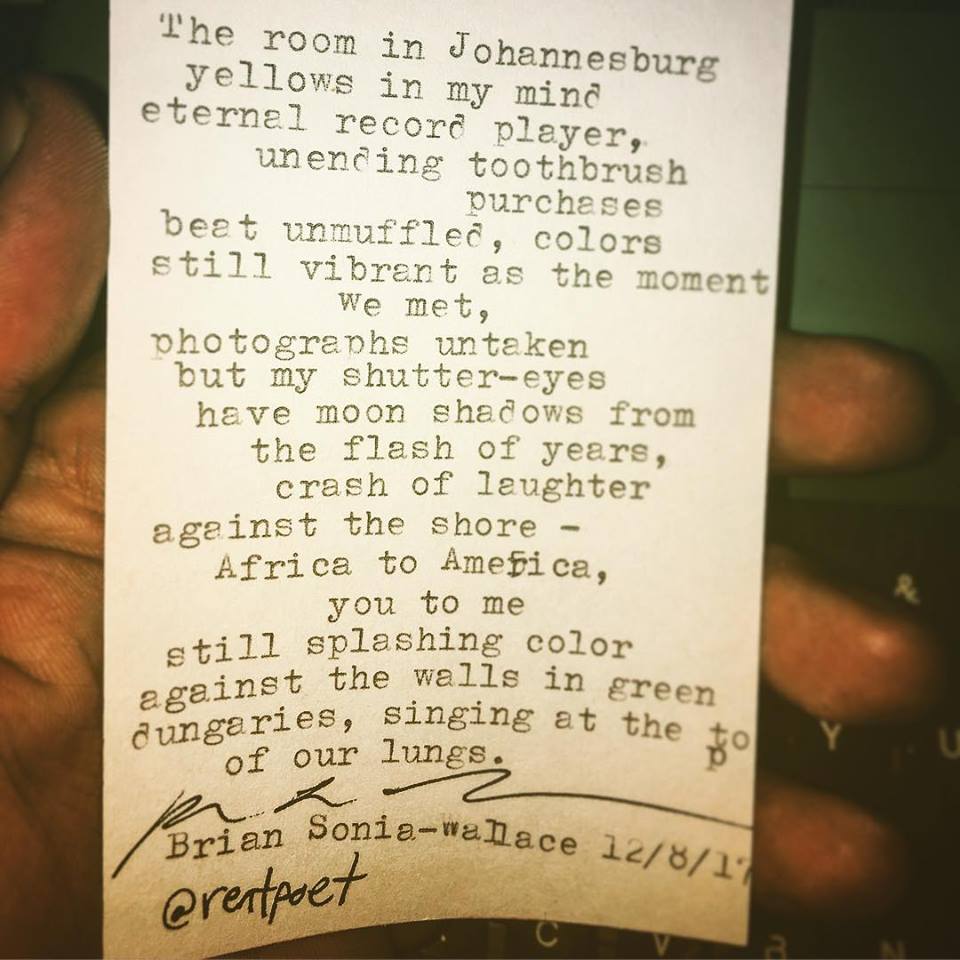 The room in Johannesburg
yellows in my mind
eternal record player,
unending toothbrush
purchases
beat unmuffled, colors
still vibrant as the moment
we met,
photographs untaken
but my shutter-eyes
have moon shadows from
the flash of years,
crash of laughter
against the shore -
Africa to America,
you to me
still splashing color
against the walls in green
dungaries, singing at the to
p
of our lungs.
Brian Sonia-wallace 12/8/17
@rentpoet
&
Y U
C V B N